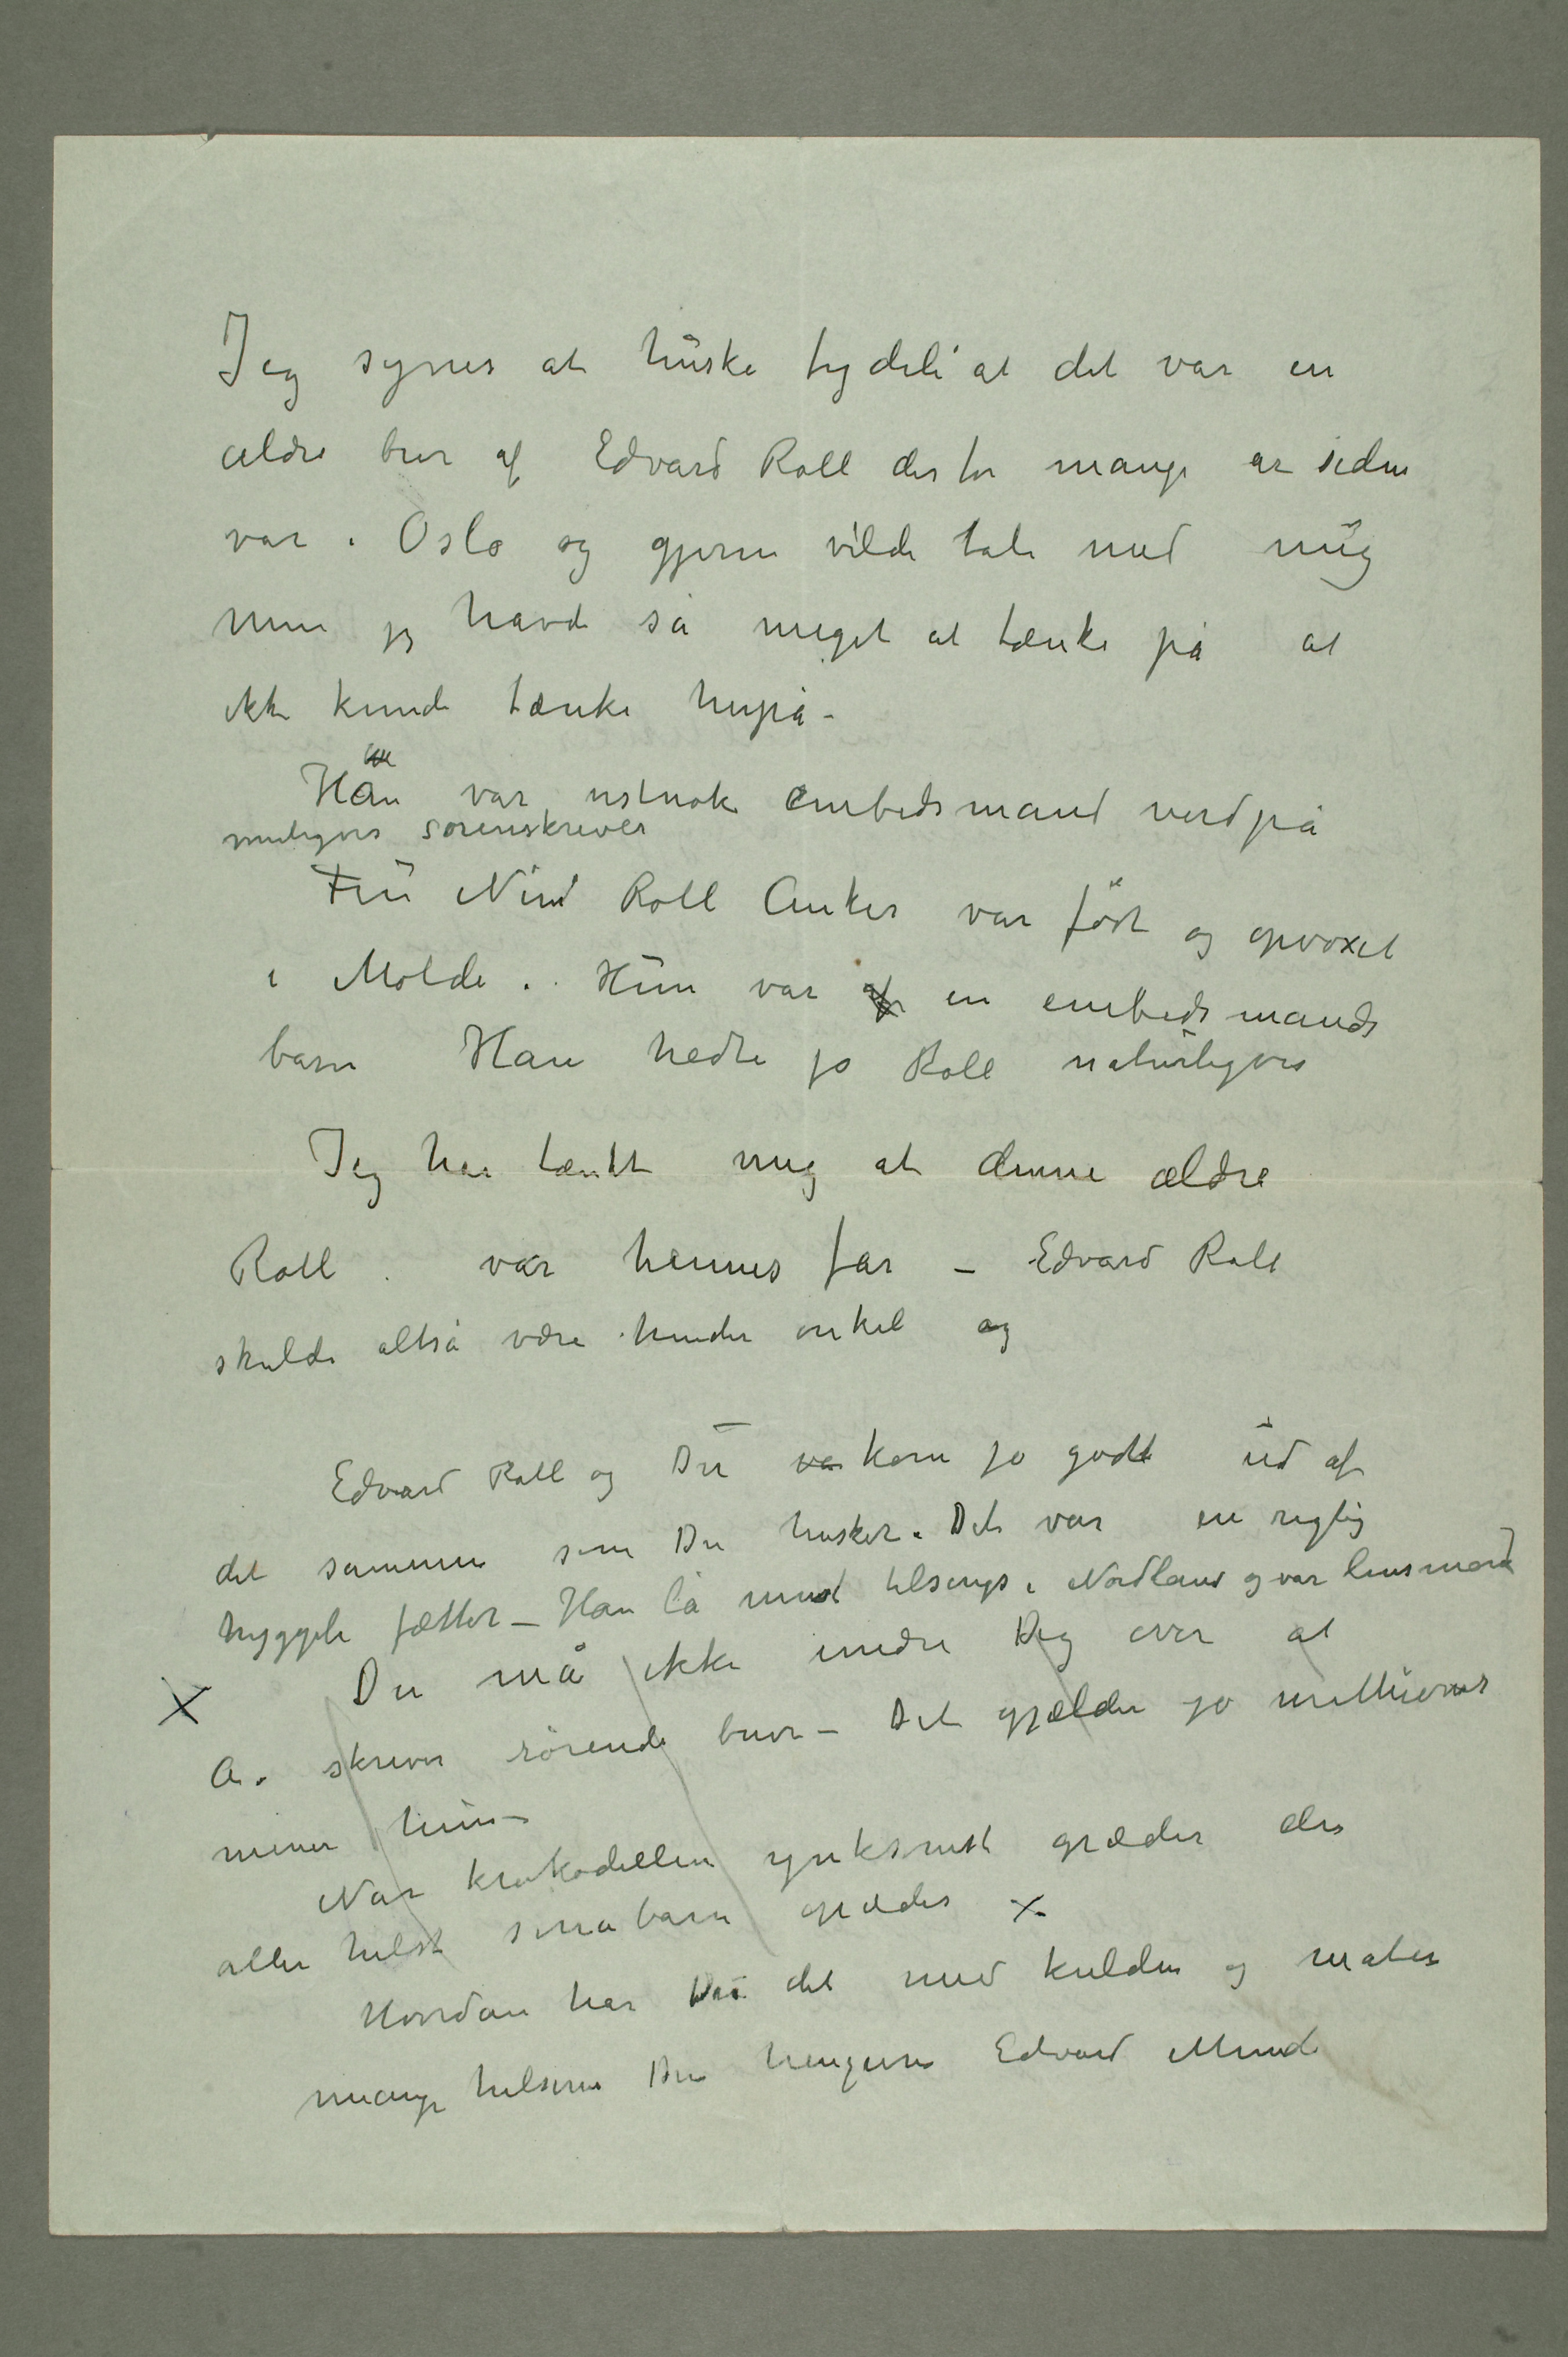 Jeg synes at huske tydeli at det var en
ældre bror af Edvard Roll der for mange år siden
var i Oslo og gjerne vilde tale med mig
men jeg havde så meget at tænke på at
ikke kunde tænke herpå –
Han var nstnok embedsmand nordpå
muligvis sorenskriver
Fru Nini Roll Anker var født og opvoxet
i Molde. Hun var en embedsmands
barn Han hedte jo Roll naturligvis
Jeg har tænkt mig at denne ældre
Roll. var hennes far – Edvard Roll
skulde altså være hendes onkel og
Edvard Roll og Du va kom jo godt ud af
det sammen som Du husker. Det var en rigtig
hyggeli fætter – Han lå mest tilsengs i Nordland og var lensmand
X Du må ikke undre Dig over at
A. skriver rørende breve – Det gjælder jo millioner
mener hun –
Når krokodillen ynksomst græder den
aller helst små barn opæder X
Hvordan har Du det med kulden og maten
mange hilsener Din hengivne Edvard Munch